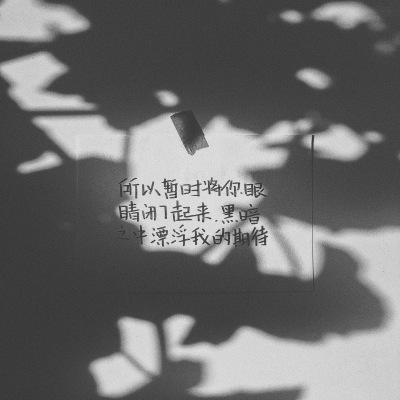 所以暂时将你眼
睛闭了起来.黑暗
之中漂浮我的期待